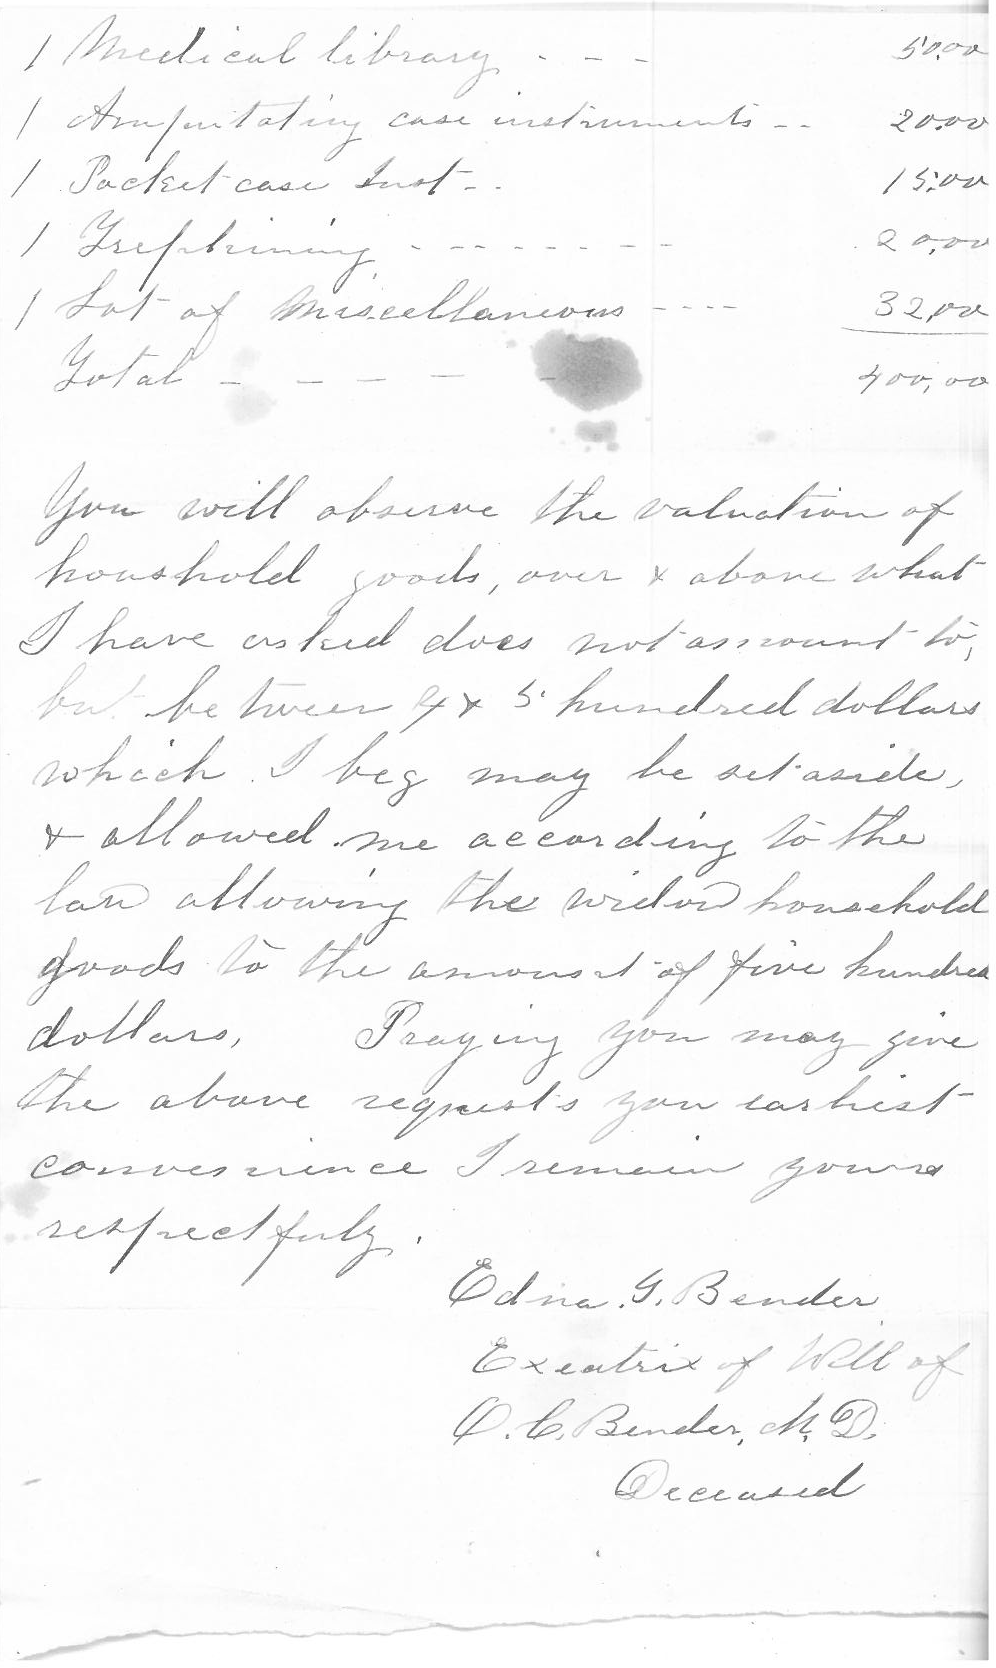 1 Medical library - - - 50.00
1 Amputating case instruments - - 20.00
1 Pocket case Inst - - 15.00
1 Trephining - - - - - - - 20.00
1 Lot of Miscellaneous - - - - 32.00
Total - - - - - 400.00
You will observe the valuation of
houshold goods, over & above what
I have asked does not amount to,
but between 4 & 5 hundred dollars
which I beg may be set aside,
& allowed me according to the
law allowing the widow household
goods to the amount of five hundred
dollars, Praying you may give
the above requests you earliest
convenience I remain yours
respectfuly.
Edna. G. Bender
Exeatrix of Will of
O. C. Bender, M. D.
Deceased